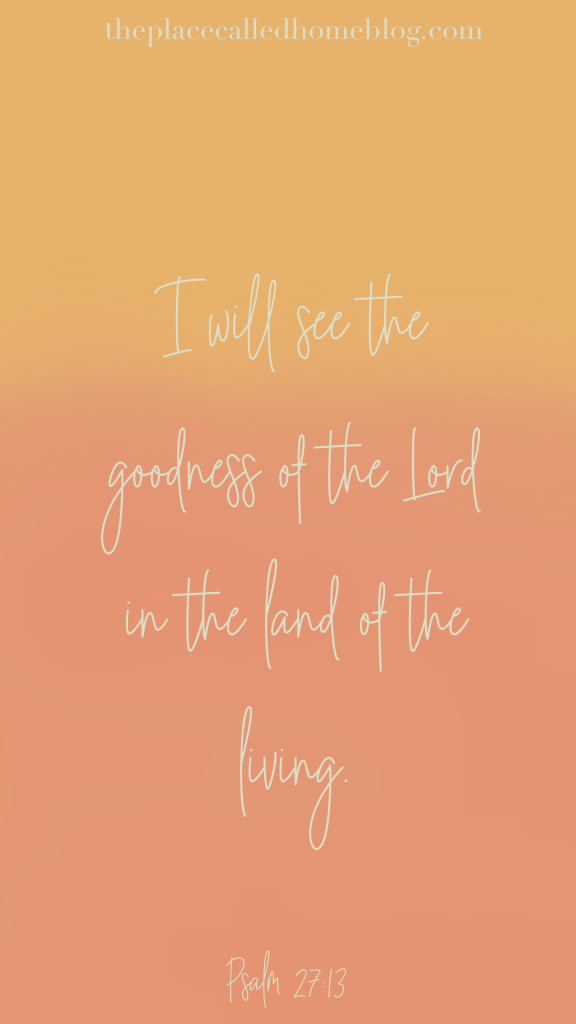 theplacecalledhomeblog.com
I will see the
goodness of the Lord
in the land of the
living.
Psalm 27:13